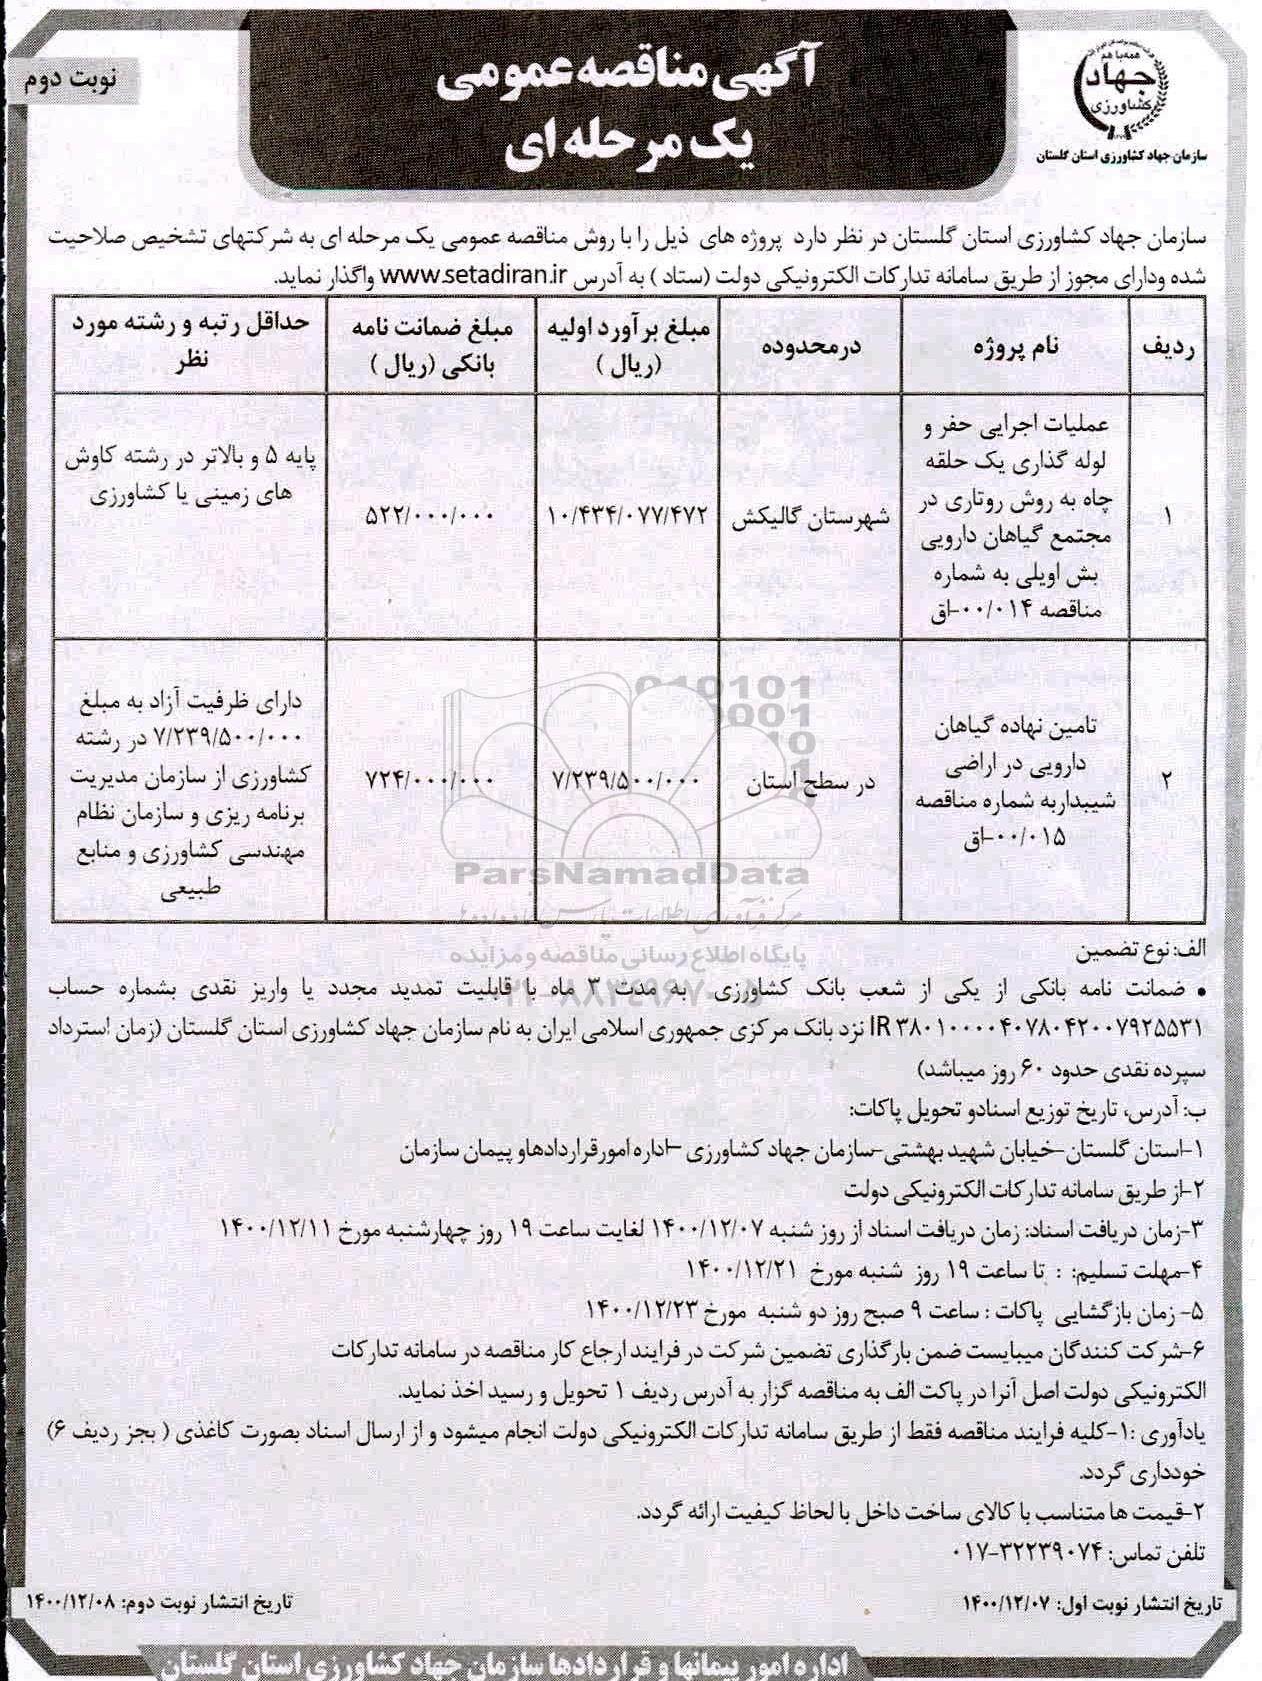 همه با هم
جهاد
کشاورزی
سازمان جهاد کشاورزی استان گلستان
آگهی مناقصه عمومی
یک مرحله ای
نوبت دوم
سازمان جهاد کشاورزی استان گلستان در نظر دارد پروژه های ذیل را با روش مناقصه عمومی یک مرحله ای به شرکتهای تشخیص صلاحیت
شده ودارای مجوز از طریق سامانه تدارکات الکترونیکی دولت (ستاد ) به آدرس www.setadiran.ir واگذار نماید.
ردیف
نام پروژه
درمحدوده
مبلغ برآورد اولیه
(ریال )
مبلغ ضمانت نامه
بانکی (ریال )
حداقل رتبه و رشته مورد
نظر
۱
عملیات اجرایی حفر و
لوله گذاری یک حلقه
چاه به روش روتاری در
مجتمع گیاهان دارویی
بش اویلی به شماره
مناقصه ۰۰/۰۱۴-اق
شهرستان گالیکش
۱۰/۴۳۴/۰۷۷/۴۷۲
۵۲۲/۰۰۰/۰۰۰
پایه ۵ و بالاتر در رشته کاوش
های زمینی یا کشاورزی
۲
تامین نهاده گیاهان
دارویی در اراضی
شیبداربه شماره مناقصه
۰۰/۰۱۵-اق
در سطح استان
۷/۲۳۹/۵۰۰/۰۰۰
۷۲۴/۰۰۰/۰۰۰
دارای ظرفیت آزاد به مبلغ
۷/۲۳۹/۵۰۰/۰۰۰ در رشته
کشاورزی از سازمان مدیریت
برنامه ریزی و سازمان نظام
مهندسی کشاورزی و منابع
طبیعی
ParsNamadData
پایگاه اطلاع رسانی مناقصه و مزایده
الف: نوع تضمین
• ضمانت نامه بانکی از یکی از شعب بانک کشاورزی به مدت ۳ ماه با قابلیت تمدید مجدد یا واریز نقدی بشماره حساب
IR ۳۸۰۱۰۰۰۰۴۰۷۸۰۴۲۰۰۷۹۲۵۵۳۱ نزد بانک مرکزی جمهوری اسلامی ایران به نام سازمان جهاد کشاورزی استان گلستان (زمان استرداد
سپرده نقدی حدود ۶۰ روز میباشد)
ب: آدرس، تاریخ توزیع اسنادو تحویل پاکات:
۱-استان گلستان-خیابان شهید بهشتی-سازمان جهاد کشاورزی –اداره امورقراردادهاو پیمان سازمان
۲-از طریق سامانه تدارکات الکترونیکی دولت
۳-زمان دریافت اسناد: زمان دریافت اسناد از روز شنبه ۱۴۰۰/۱۲/۰۷ لغایت ساعت ۱۹ روز چهارشنبه مورخ ۱۴۰۰/۱۲/۱۱
۴-مهلت تسلیم: : تا ساعت ۱۹ روز شنبه مورخ ۱۴۰۰/۱۲/۲۱
۵- زمان بازگشایی پاکات : ساعت ۹ صبح روز دو شنبه مورخ ۱۴۰۰/۱۲/۲۳
۶-شرکت کنندگان میبایست ضمن بارگذاری تضمین شرکت در فرایند ارجاع کار مناقصه در سامانه تدارکات
الکترونیکی دولت اصل آنرا در پاکت الف به مناقصه گزار به آدرس ردیف ۱ تحویل و رسید اخذ نماید.
یادآوری :۱-کلیه فرایند مناقصه فقط از طریق سامانه تدارکات الکترونیکی دولت انجام میشود و از ارسال اسناد بصورت کاغذی ( بجز ردیف ۶)
خودداری گردد.
۲-قیمت ها متناسب با کالای ساخت داخل با لحاظ کیفیت ارائه گردد.
تلفن تماس: ۳۲۲۳۹۰۷۴-۰۱۷
تاریخ انتشار نوبت اول: ۱۴۰۰/۱۲/۰۷
تاریخ انتشار نوبت دوم: ۱۴۰۰/۱۲/۰۸
اداره امور پیمانها و قراردادها سازمان جهاد کشاورزی استان گلستان